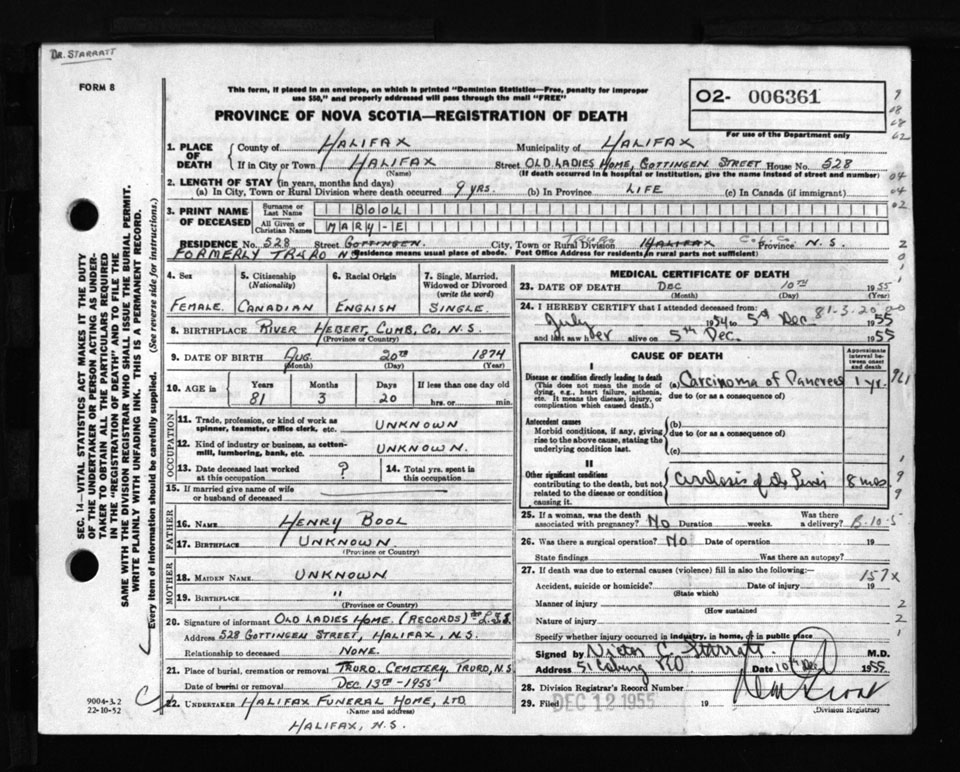 DR. STARRATT
FORM 8
This form, if placed in an envelope, on which is printed "Dominion Statistics—Free, penalty for improper
use $50," and properly addressed will pass through the mail "FREE"
PROVINCE OF NOVA SCOTIA—REGISTRATION OF DEATH
02- 006361
For use of the Department only
1. PLACE OF DEATH
County of HALIFAX Municipality of HALIFAX
If in City or Town HALIFAX Street OLD LADIES HOME, GOTTINGEN STREET House No. 528
(Name) (If death occurred in a hospital or institution, give the name instead of street and number)
2. LENGTH OF STAY (in years, months and days)
(a) In City, Town or Rural Division where death occurred 9 YRS. (b) In Province LIFE (c) In Canada (if immigrant)
3. PRINT NAME OF DECEASED
Surname or Last Name BOOL
All Given or Christian Names MARY-E
RESIDENCE No. 528 Street GOTTINGEN. City, Town or Rural Division TRURO HALIFAX Province N.S.
FORMERLY TRURO N.S. Residence means usual place of abode. Post Office Address for residents in rural parts not sufficient)
4. Sex
FEMALE
5. Citizenship (Nationality)
CANADIAN
6. Racial Origin
ENGLISH
7. Single, Married, Widowed or Divorced (write the word)
SINGLE.
8. BIRTHPLACE RIVER HEBERT, CUMB, CO. N.S.
(Province or Country)
9. DATE OF BIRTH AUG. 20TH 1874
(Month) (Day) (Year)
10. AGE in
Years Months Days If less than one day old
81 3 20 hrs. or min.
OCCUPATION
11. Trade, profession, or kind of work as spinner, teamster, office clerk, etc. UNKNOWN
12. Kind of industry or business, as cotton-mill, lumbering, bank, etc. UNKNOWN.
13. Date deceased last worked at this occupation ?
14. Total yrs. spent in this occupation.
15. If married give name of wife or husband of deceased
FATHER
16. NAME HENRY BOOL
17. BIRTHPLACE UNKNOWN.
(Province or Country)
MOTHER
18. MAIDEN NAME. UNKNOWN
19. BIRTHPLACE "
(Province or Country)
20. Signature of informant OLD LADIES HOME. (RECORDS)
Address 528 GOTTINGEN STREET, HALIFAX, N.S.
Relationship to deceased NONE.
21. Place of burial, cremation or removal TRURO. CEMETERY, TRURO, N.S.
Date of burial or removal DEC 13TH-1955
22. UNDERTAKER HALIFAX FUNERAL HOME, LTD
(Name and address)
HALIFAX, N.S.
9004-3.2
22-10-52
SEC. 14—VITAL STATISTICS ACT MAKES IT THE DUTY
OF THE UNDERTAKER OR PERSON ACTING AS UNDER-
TAKER TO OBTAIN ALL THE PARTICULARS REQUIRED
IN THE "REGISTRATION OF DEATH" AND TO FILE THE
SAME WITH THE DIVISION REGISTRAR WHO SHALL ISSUE THE BURIAL PERMIT.
WRITE PLAINLY WITH UNFADING INK. THIS IS A PERMANENT RECORD.
Every item of information should be carefully supplied. (See reverse side for instructions.)
MEDICAL CERTIFICATE OF DEATH
23. DATE OF DEATH DEC 10TH 1955
(Month) (Day) (Year)
24. I HEREBY CERTIFY that I attended deceased from: 81-3-20
July 1954 to 5th Dec 1955
and last saw her alive on 5th Dec. 1955
CAUSE OF DEATH
Approximate interval between onset and death
I
Disease or condition directly leading to death
(This does not mean the mode of dying, e.g., heart failure, asthenia, etc. It means the disease, injury, or complication which caused death.)
(a) Carcinoma of Pancreas 1 yr.
due to (or as a consequence of)
Antecedent causes
Morbid conditions, if any, giving rise to the above cause, stating the underlying condition last.
(b)
due to (or as a consequence of)
(c)
II
Other significant conditions
contributing to the death, but not related to the disease or condition causing it.
Cirrhosis of the Liver 8 mos
25. If a woman, was the death associated with pregnancy? No Duration weeks. Was there a delivery?
26. Was there a surgical operation? No Date of operation 19
State findings Was there an autopsy?
27. If death was due to external causes (violence) fill in also the following:—
Accident, suicide or homicide? Date of injury 19
(State which)
157X
Manner of injury
(How sustained
Nature of injury
Specify whether injury occurred in industry, in home, or in public place
Signed by Victor C. Starratt M.D.
Address 51 Coburg Rd Date 10th Dec 1955
28. Division Registrar's Record Number
29. Filed DEC 12 1955 19
(Division Registrar)